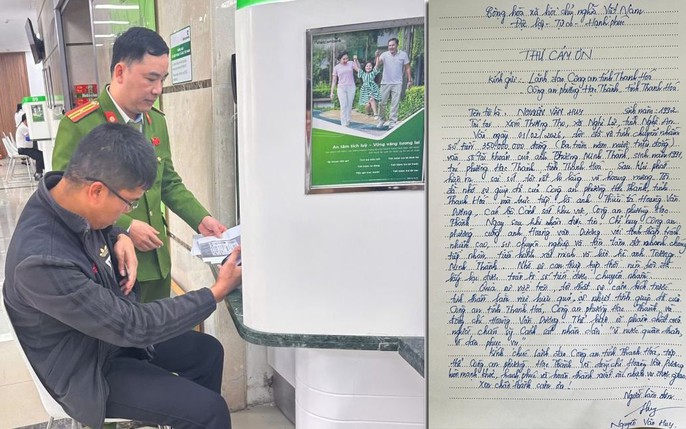 An tâm tích lũy - Vững vàng tương lai
Cộng hòa xã hội chủ nghĩa Việt Nam
Độc lập - Tự do - Hạnh phúc
THƯ CẢM ƠN
Kính gửi: - Lãnh đạo Công an tỉnh Thanh Hóa
Công an phường Hạc Thành, tỉnh Thanh Hóa
Tên tôi là: NGUYỄN VĂN HUY Sinh năm: 1992
Trú tại: Xóm Thượng Thọ, xã Nghi Lộc, tỉnh Nghệ An
Vào ngày 01/02/2026, tôi có chuyển nhầm
số tiền 350.000.000 đồng (Ba trăm năm mươi triệu đồng)
vào số tài khoản của anh Trương Minh Thành, sinh năm 1991,
trú phường Hạc Thành, tỉnh Thanh Hóa. Sau khi phát
hiện ra sai sót tôi rất lo lắng và hoang mang. Tôi
đã nhờ sự giúp đỡ của Công an phường Hạc Thành, tỉnh
Thanh Hóa, mà trực tiếp là anh Thiếu tá Hoàng Văn
Dương, Cán bộ Cảnh sát khu vực, Công an phường Hạc
Thành. Ngay sau khi nhận được tin, Chỉ huy Công an
phường cùng anh Hoàng Văn Dương với tinh thần trách
nhiệm cao, sự chuyên nghiệp và tận tâm đã nhanh chóng
tiếp nhận, tiến hành xác minh và liên hệ anh Trương
Minh Thành. Nhờ sự can thiệp kịp thời nên tôi đã
lấy lại được toàn bộ số tiền đã chuyển nhầm.
Qua sự việc trên, tôi thật sự cảm kích trước
tinh thần làm việc hiệu quả, sự nhiệt tình giúp đỡ của
Công an tỉnh Thanh Hóa, Công an phường Hạc Thành và
đồng chí Hoàng Văn Dương. Thể hiện rõ phẩm chất của
người chiến sỹ Cảnh sát nhân dân, "Vì nước quên thân,
vì dân phục vụ".
Kính chúc Lãnh đạo Công an tỉnh Thanh Hóa, tập
thể Công an phường Hạc Thành và đồng chí Hoàng Văn Dương
luôn mạnh khỏe, hạnh phúc và hoàn thành xuất sắc nhiệm vụ được giao.
Xin chân thành cảm ơn!
Người làm đơn
Huy
Nguyễn Văn Huy